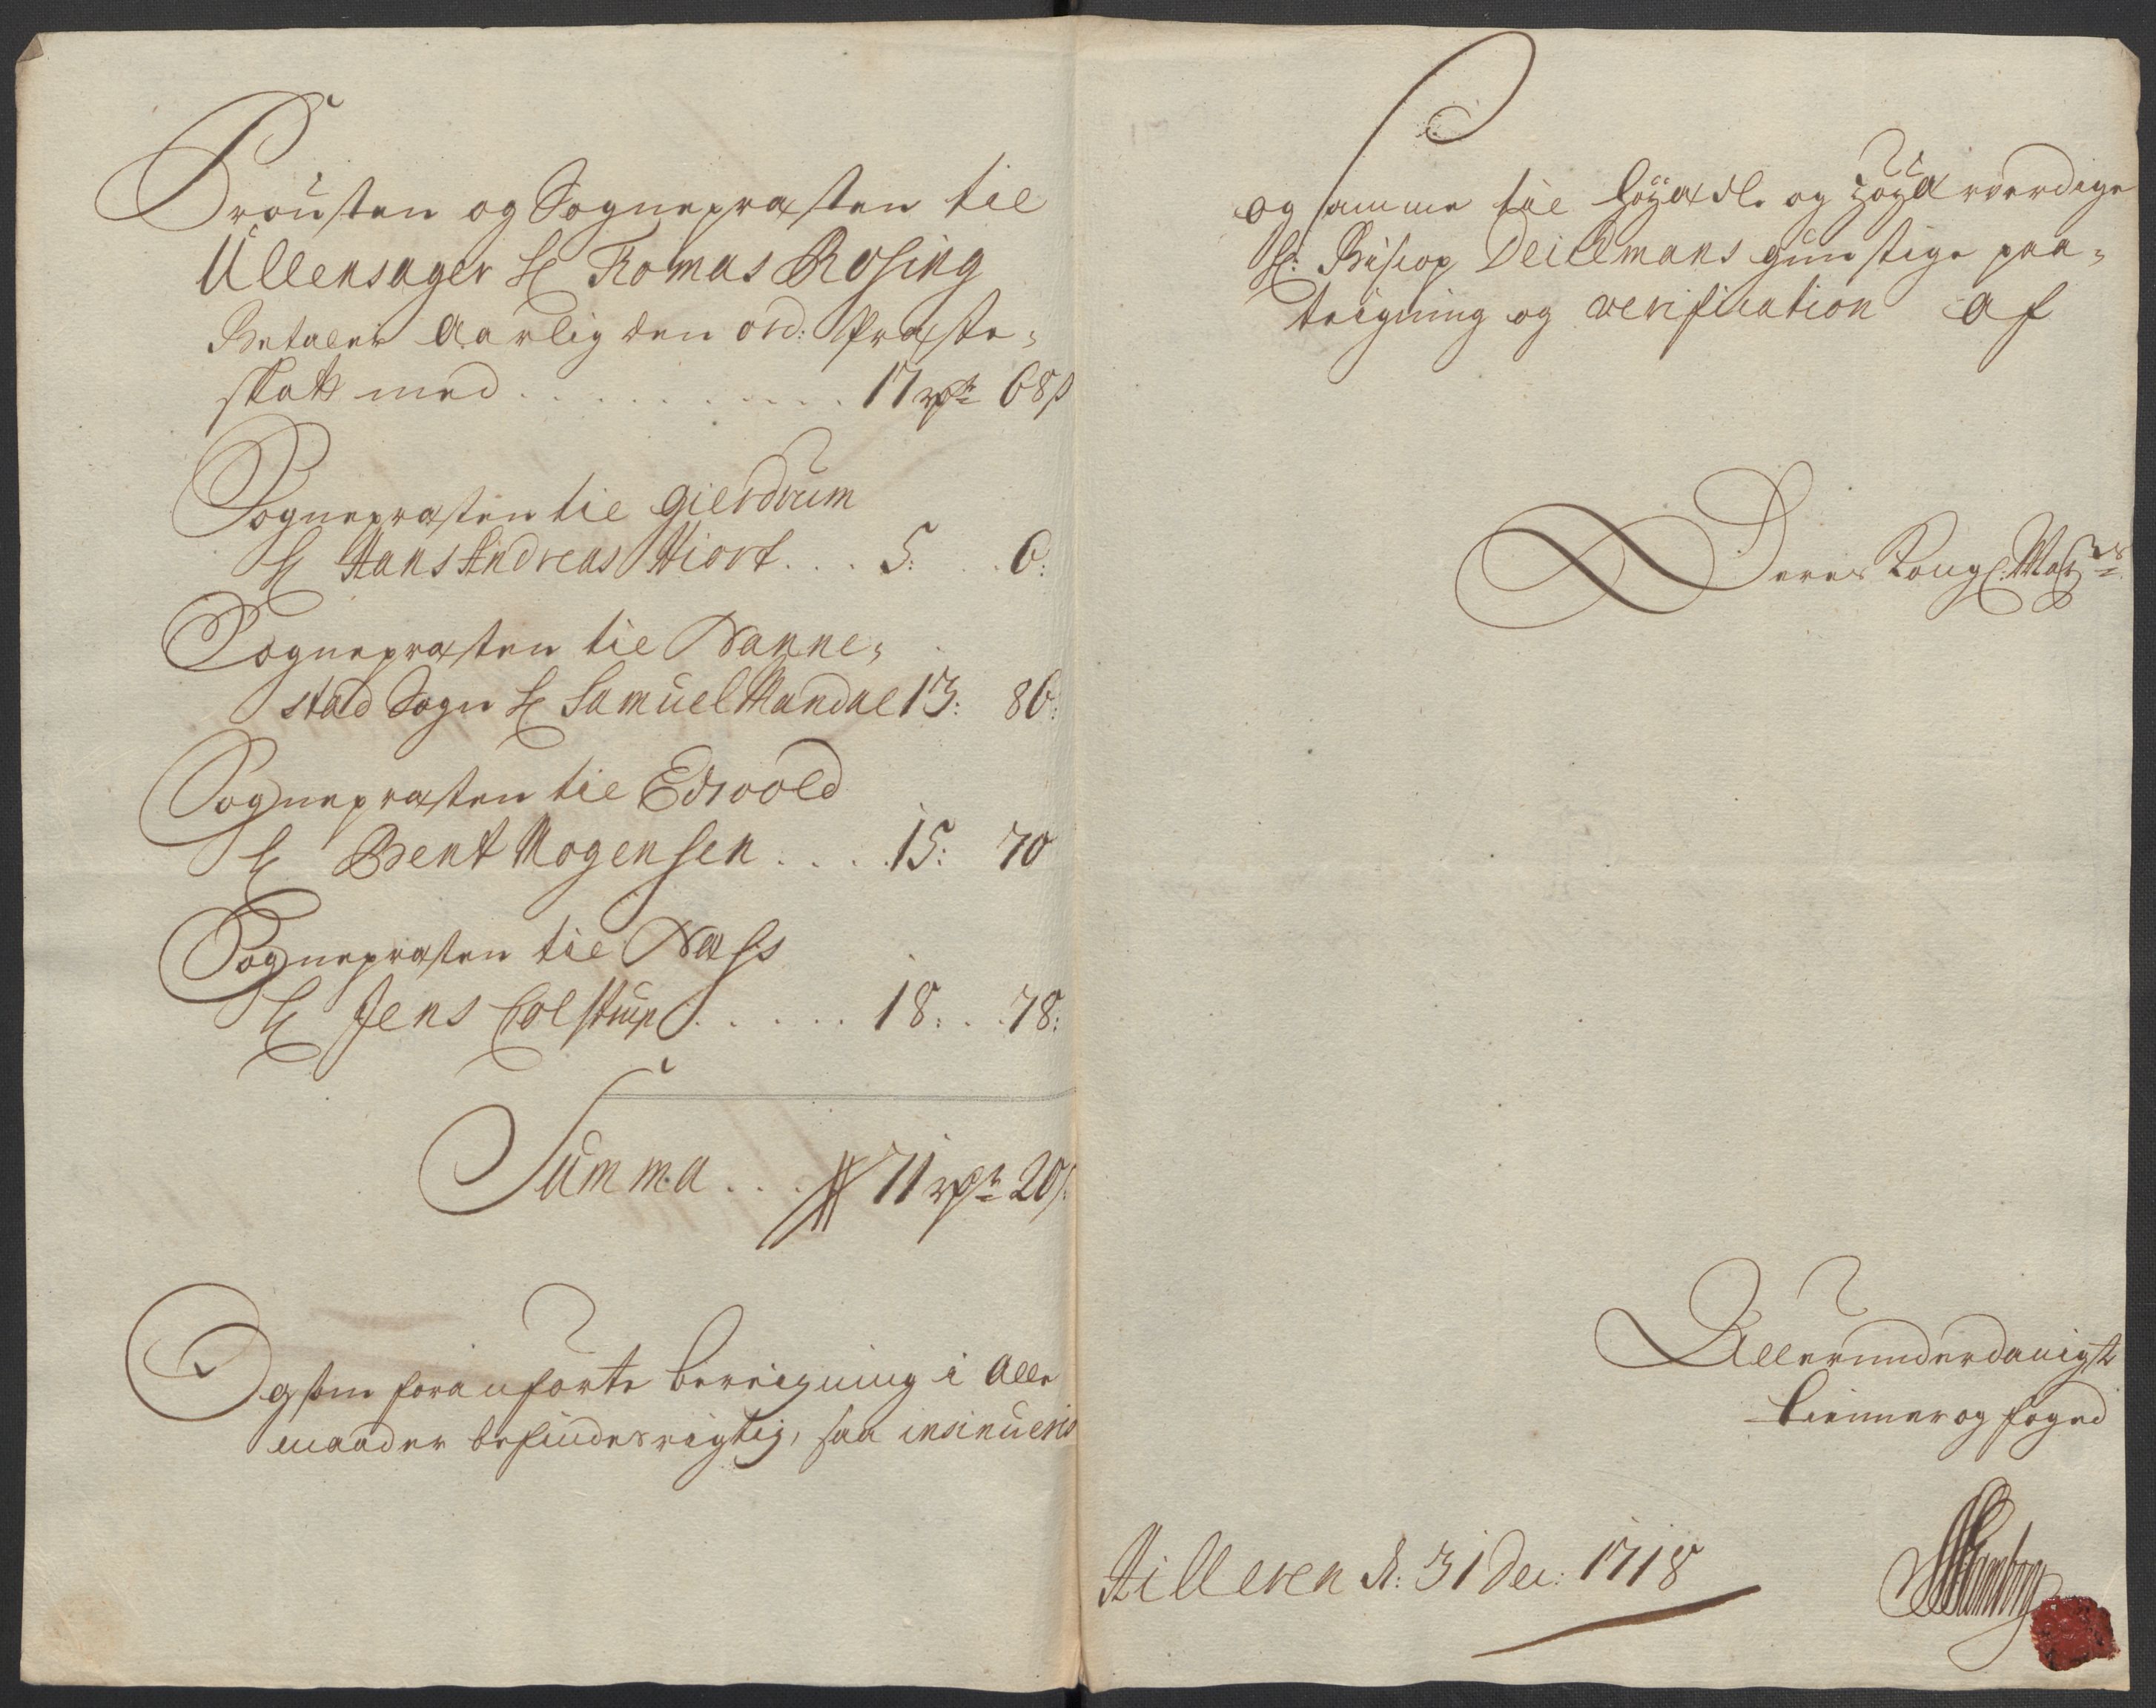 Prousten og Sognepræsten til
Ullensager Hr Tomas Rosing
Betaler Aarlig den ord: Præste-
skatt med . . . . . . . . . . 17 rdr 68 ß
Sognepræsten til Gierdrum
Hr Hans Andreas Hiort . . . 5: . . 6:
Sognepræsten til Nanne-
stad Sogn Hr Samuel Mandal 13: 86:
Sognepræsten til Edsvold
Hr Bent Mogensen . . . . 15: 70
Sognepræsten til Næss
Hr Jens Colstrup . . . . . 18: . . 78:
Summa . . . 71 rdr 20 ß:
Og som foranførte beregning i Alle
maader befindes rigtig, saa insinueris
og samme til Høyædle og Høyærverdige
Hr: Biscop Deichmans gunstige paa-
teigning og verification af
Deres Kongl. Mayts
Allerunderdanigste
tienner og foged
Hilleren d: 31 Dec: 1718